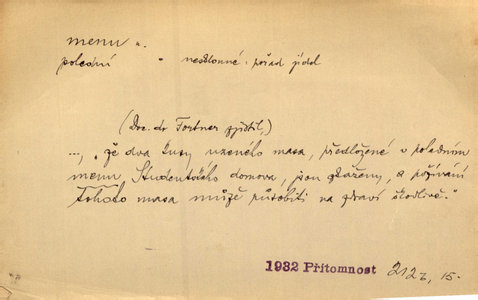 menu n.
polední " nesklonné : pořad jídel
(Doc. dr Fortner zjistil,)
..., „že dva kusy uzeného masa, předložené v poledním
menu Studentského domova, jsou zkaženy, a požívání
tohoto masa může působiti na zdraví škodlivě."
1932 Přítomnost 212, 15.